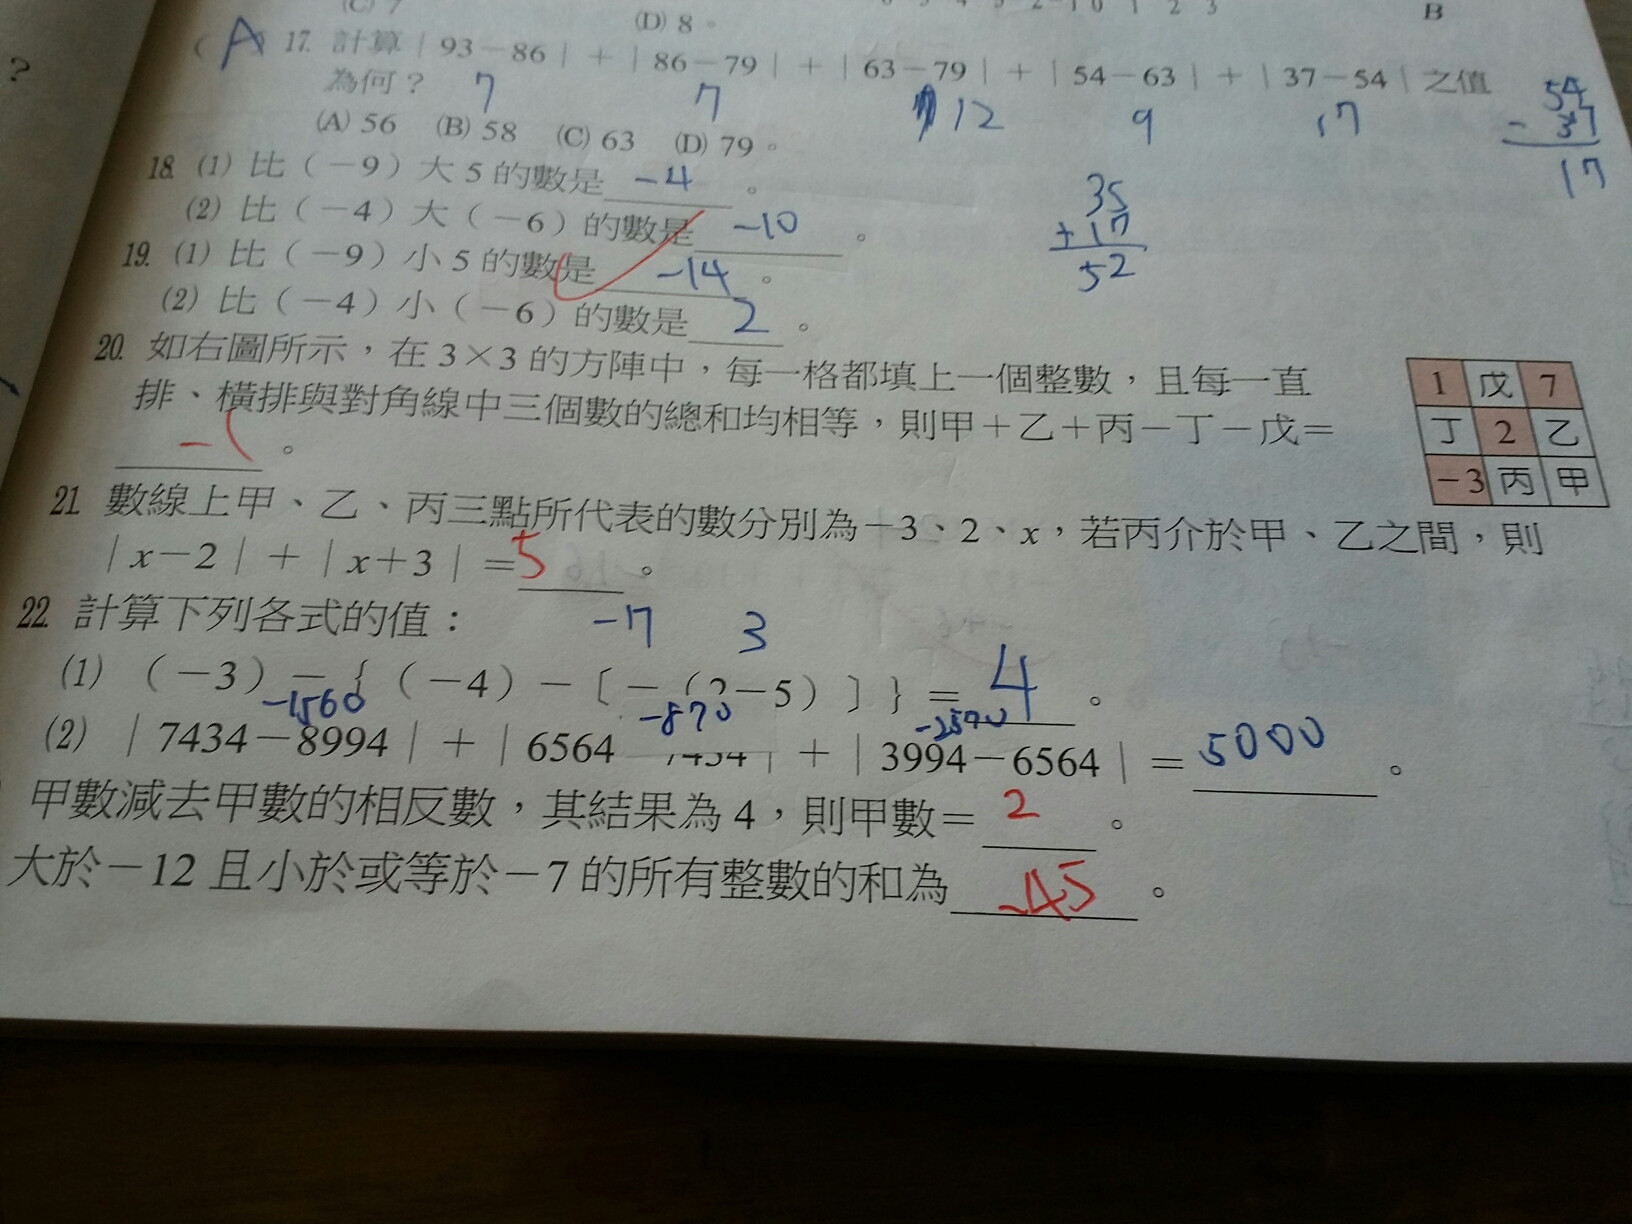 (C) 7
(D) 8。
2 -1 0 1 2 3
B
?
( A ) 17. 計算｜93－86｜＋｜86－79｜＋｜63－79｜＋｜54－63｜＋｜37－54｜之值
為何？ 7 7 12 9 17
54
- 37
17
(A) 56 (B) 58 (C) 63 (D) 79。
18. (1) 比（－9）大 5 的數是 -4 。
(2) 比（－4）大（－6）的數是 -10 。
35
+17
52
19. (1) 比（－9）小 5 的數是 -14 。
(2) 比（－4）小（－6）的數是 2 。
20. 如右圖所示，在 3×3 的方陣中，每一格都填上一個整數，且每一直
排、橫排與對角線中三個數的總和均相等，則甲＋乙＋丙－丁－戊＝
-1 。
1 戊 7
丁 2 乙
－3 丙 甲
21. 數線上甲、乙、丙三點所代表的數分別為－3、2、x，若丙介於甲、乙之間，則
｜x－2｜＋｜x＋3｜＝ 5 。
22. 計算下列各式的值：
-7 3
(1) （－3）－｛（－4）－〔－（2－5）〕｝＝ 4 。
-1560 -870 -2570
(2) ｜7434－8994｜＋｜6564 7434｜＋｜3994－6564｜＝ 5000 。
甲數減去甲數的相反數，其結果為 4，則甲數＝ 2 。
大於－12 且小於或等於－7 的所有整數的和為 -45 。